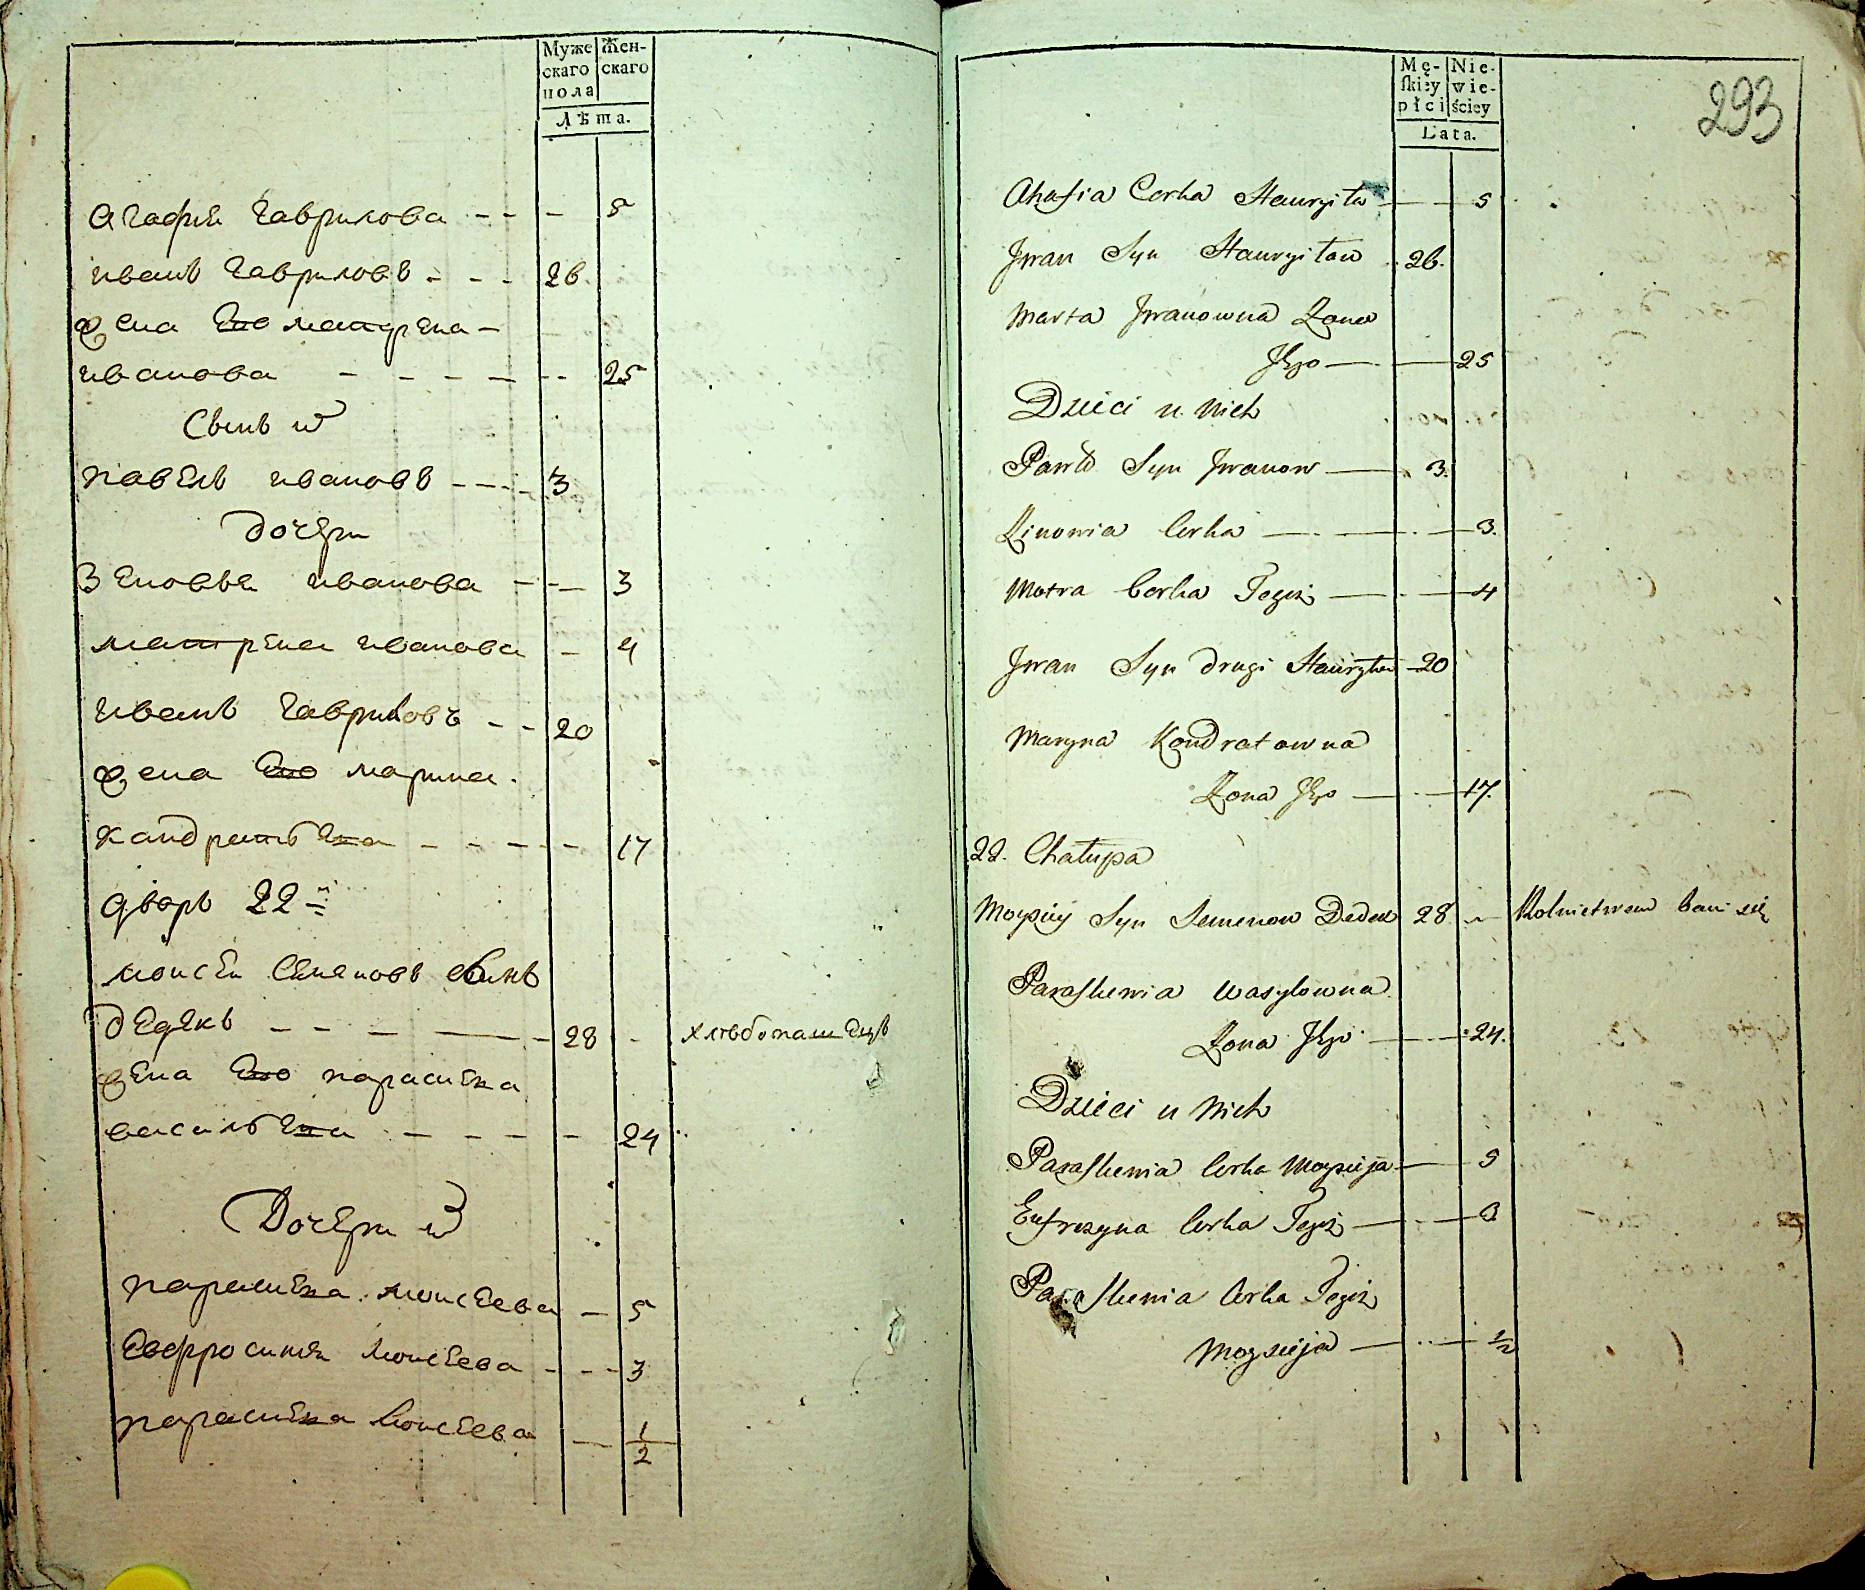 Муже
скаго
пола
Жен-
скаго
Лѣта.
Агафия Гаврилова - - - 5
иванъ Гавриловъ - - - 26.
жена Его матрена -
иванова - - - - - - 25
Сынъ
павелъ ивановъ - - - - 3
дочери
Зеновья иванова - - - 3
матрена иванова - 4
иванъ Гавриловъ - - 20
жена Его марина.
кандратьева - - - - - 17
дворъ 22-й
моисей Семеновъ сынъ
дедекъ - - - - - 28 - хлѣбопашецъ
жена Его параскева
васильева - - - - - 24
Дочери
параскева моисеева - 5
Евфросиния моисеева - - - 3
параскева моисеева - 1/2
Mę-
skiey
płci
Nie-
wie-
ściey
Lata.
293
Ahafia Corka Hauryła - - 5
Jwan Syn Hauryłow 26.
Marta Jwanowna Zona
Jego - - 25
Dzieci u Nich
Paweł Syn Jwanow - 3.
Zinowia Corka - - - 3.
Motra Corka Tegoż - - - 4
Jwan Syn drugi - 20
Maryna Kondratowna
Zona Jego - - - 17.
22. Chałupa
Moysiey Syn Semenow Dedek 28 - Rolnictwem bawi się
Paraskewia Wasylowna
Zona Jego - - - 24.
Dzieci u Nich
Paraskewia Corka Moysieja - - 5
Eufrozyna Corka Tegoż - - - 3
Paraskewia Corka Tegoż
Moysieja - - - 1/2